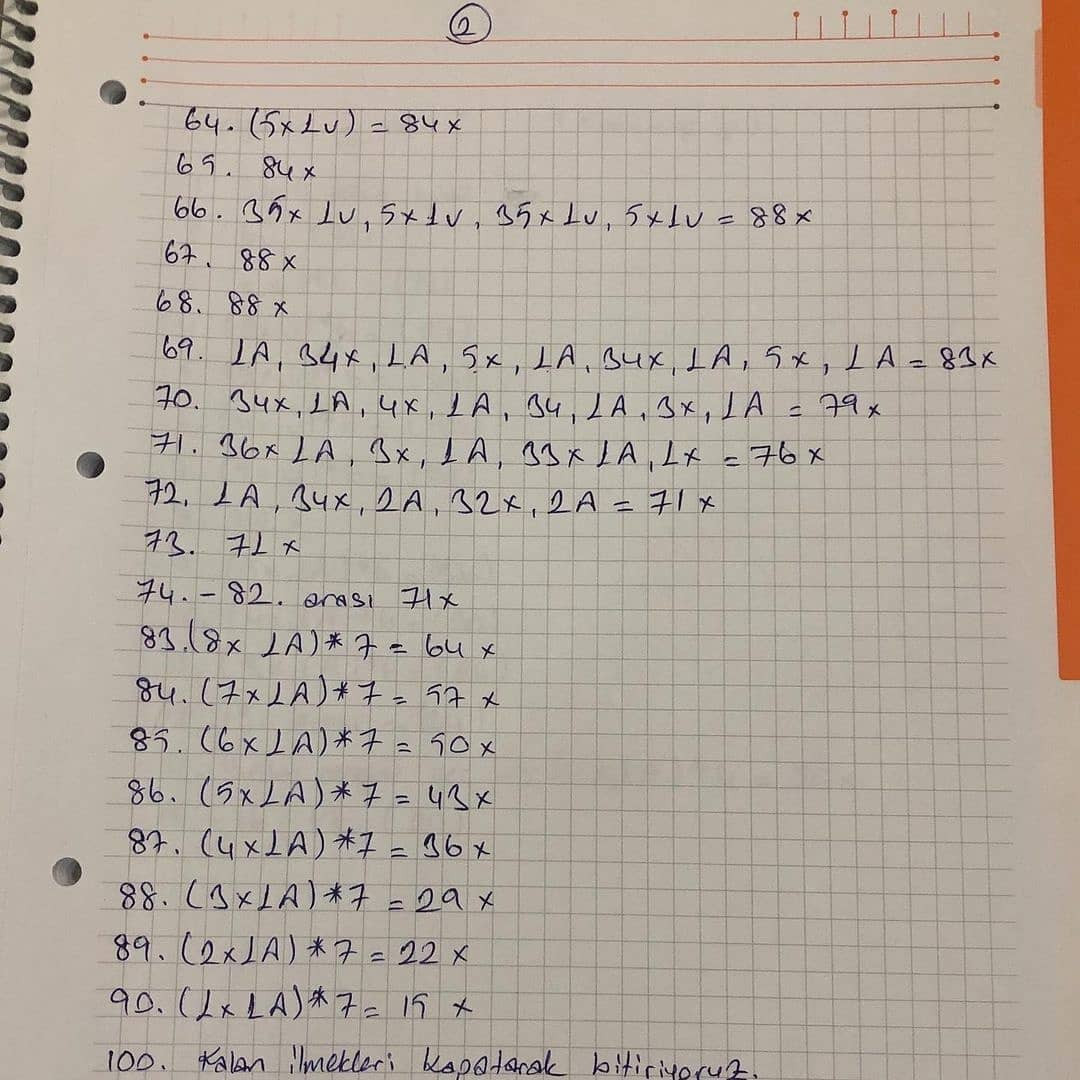 2
64. (5x1v) = 84x
65. 84x
66. 35x 1v, 5x1v, 35x1v, 5x1v = 88x
67. 88x
68. 88x
69. 1A, 34x, 1A, 5x, 1A, 34x, 1A, 5x, 1A = 83x
70. 34x, 1A, 4x, 1A, 34, 1A, 3x, 1A = 79x
71. 36x 1A, 3x, 1A, 33x 1A, 1x = 76x
72. 1A, 34x, 2A, 32x, 2A = 71x
73. 71x
74. - 82. arası 71x
83. (8x 1A)*7 = 64x
84. (7x1A)*7 = 57x
85. (6x1A)*7 = 50x
86. (5x1A)*7 = 43x
87. (4x1A)*7 = 36x
88. (3x1A)*7 = 29x
89. (2x1A)*7 = 22x
90. (1x1A)*7 = 15x
100. Kalan ilmekleri kapatarak bitiriyoruz.